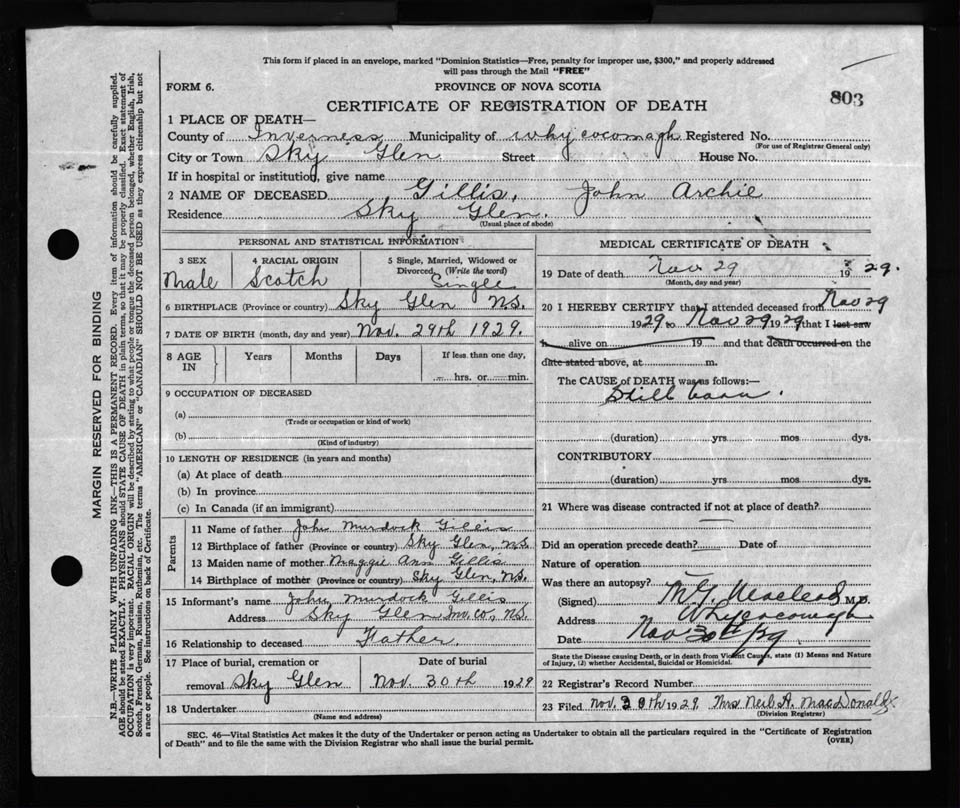 This form if placed in an envelope, marked "Dominion Statistics—Free, penalty for improper use, $300," and properly addressed
will pass through the Mail "FREE"
FORM 6.
PROVINCE OF NOVA SCOTIA
803
CERTIFICATE OF REGISTRATION OF DEATH
1 PLACE OF DEATH—
County of Inverness Municipality of Whycocomagh Registered No.
(For use of Registrar General only)
City or Town Sky Glen Street House No.
If in hospital or institution, give name
2 NAME OF DECEASED Gillis, John Archie
Residence Sky Glen.
(Usual place of abode)
PERSONAL AND STATISTICAL INFORMATION
3 SEX
Male
4 RACIAL ORIGIN
Scotch
5 Single, Married, Widowed or
Divorced (Write the word)
Single
6 BIRTHPLACE (Province or country) Sky Glen N.S.
7 DATE OF BIRTH (month, day and year) Nov. 29th 1929.
8 AGE IN
Years Months Days If less than one day,
hrs. or min.
9 OCCUPATION OF DECEASED
(a)
(Trade or occupation or kind of work)
(b)
(Kind of industry)
10 LENGTH OF RESIDENCE (in years and months)
(a) At place of death
(b) In province
(c) In Canada (if an immigrant)
Parents
11 Name of father John Murdock Gillis
12 Birthplace of father (Province or country) Sky Glen, N.S.
13 Maiden name of mother Maggie Ann Gillis
14 Birthplace of mother (Province or country) Sky Glen, N.S.
15 Informant's name John Murdock Gillis
Address Sky Glen Inv. Co, N.S.
16 Relationship to deceased Father.
17 Place of burial, cremation or
removal Sky Glen
Date of burial
Nov. 30th 1929
18 Undertaker
(Name and address)
MEDICAL CERTIFICATE OF DEATH
19 Date of death Nov 29 1929.
(Month, day and year)
20 I HEREBY CERTIFY that I attended deceased from Nov 29
1929 to Nov 29 1929 that I last saw
h alive on 19 and that death occurred on the
date stated above, at m.
The CAUSE of DEATH was as follows:—
Still born.
(duration) yrs mos dys.
CONTRIBUTORY
(duration) yrs mos dys.
21 Where was disease contracted if not at place of death?
Did an operation precede death? Date of
Nature of operation
Was there an autopsy?
(Signed) Macleod M.D.
Address Whycocomagh
Date Nov 30th/29
State the Disease causing Death, or in death from Violent Causes, state (1) Means and Nature
of Injury, (2) whether Accidental, Suicidal or Homicidal.
22 Registrar's Record Number
23 Filed Nov. 30th 1929 Mrs Neil A. MacDonald
(Division Registrar)
SEC. 46—Vital Statistics Act makes it the duty of the Undertaker or person acting as Undertaker to obtain all the particulars required in the "Certificate of Registration
of Death" and to file the same with the Division Registrar who shall issue the burial permit.
(OVER)
MARGIN RESERVED FOR BINDING
N.B.—WRITE PLAINLY WITH UNFADING INK—THIS IS A PERMANENT RECORD. Every item of information should be carefully supplied.
AGE should be stated EXACTLY. PHYSICIANS should STATE CAUSE OF DEATH in plain terms, so that it may be properly classified. Exact statement of
OCCUPATION is very important. RACIAL ORIGIN will be described by stating to what people or tongue the deceased person belonged, whether English, Irish,
Scotch, French, German, Russian, Ruthenian, etc. The terms "AMERICAN" or "CANADIAN" SHOULD NOT BE USED as they express citizenship but not
a race or people. See instructions on back of Certificate.